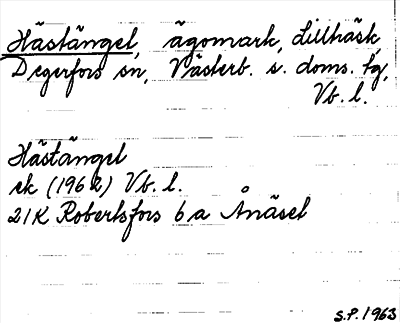 Hästängel, ägomark, Lillträsk,
Degerfors sn, Västerb. s. doms. tg,
Vb. l.
Hästängel
ek (1962) Vb. l.
21K Robertsfors 6a Ånäset
S.P. 1963